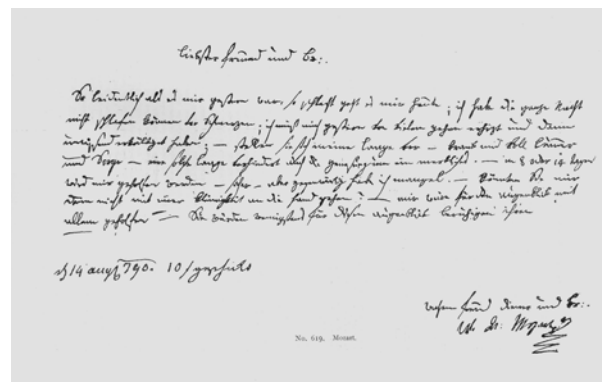 Liebster Freund und Br:.
So leidentlich als es mir gestern war, so schlecht geht es mir heute; ich habe die ganze Nacht
nicht schlafen können vor Schmerzen; ich muß mich gestern von vielem gehen erhitzt und dann
unwissend erkältet haben; — stellen sie sich meine Laage vor — krank und voll kummer
und Sorge — eine solche Laage verhindert auch die genesung um ein merkliches. — in 8 oder 14 tagen
wird mir geholfen werden — sicher — aber gegenwärtig habe ich mangel. — könnten Sie mir
denn nicht mit einer kleinigkeit an die hand gehen? — mir wäre für den augenblick mit
allem geholfen — Sie würden wenigstens für diesen augenblick beruhigen ihren
14 augst 790.
wahren freund diener und Br:.
Mozart
No. 619. Mozart.